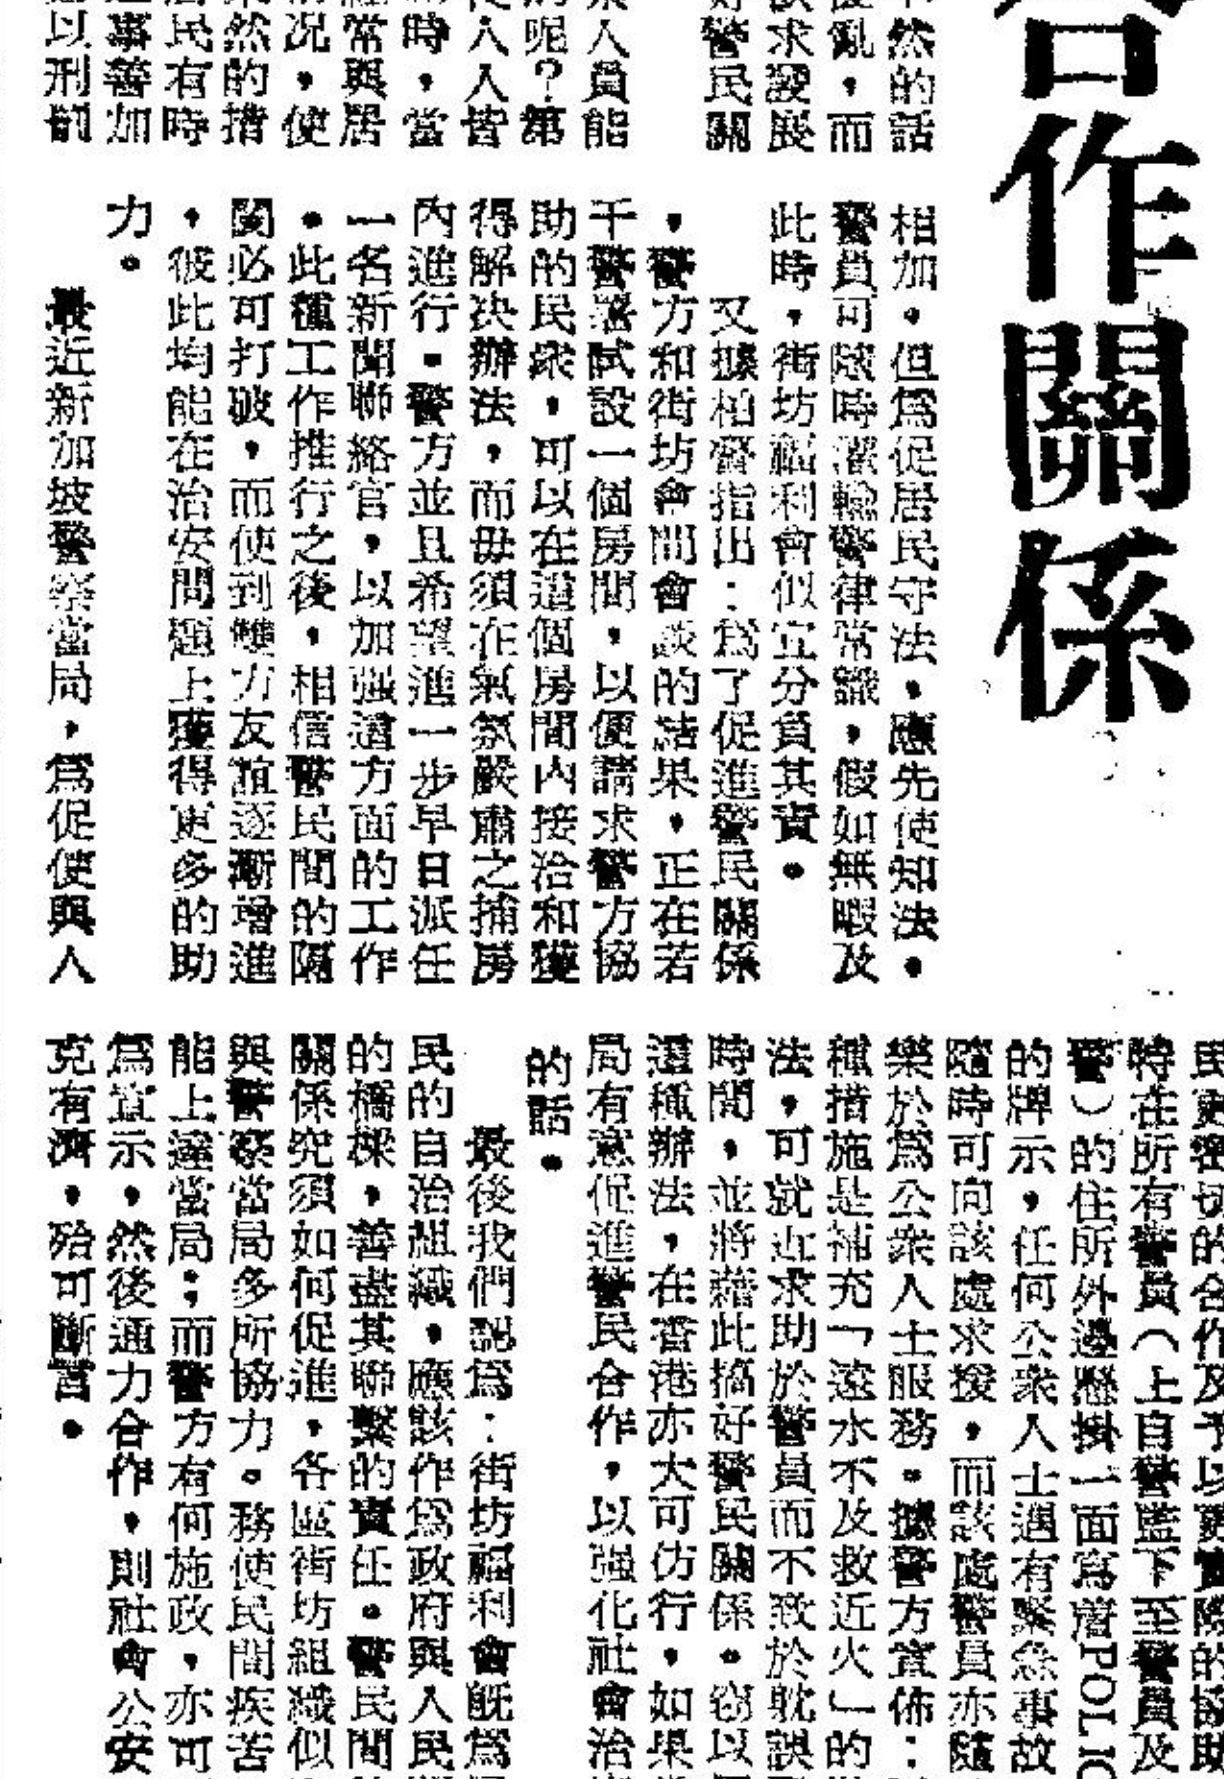 合作關係
然的話
亂，而
求發展
警民關
人員能
呢？第
人人皆
時，當
常與居
況，使
然的措
民有時
事善加
以刑罰
相加。但爲促居民守法，應先使知法。
警員可隨時灌輸警律常識，假如無暇及
此時，街坊福利會似宜分負其責。
又據柏督指出：爲了促進警民關係
，警方和街坊會間會談的結果，正在若
干警署試設一個房間，以便請求警方協
助的民衆，可以在這個房間內接洽和獲
得解決辦法，而毋須在氣氛嚴肅之捕房
內進行。警方並且希望進一步早日派任
一名新聞聯絡官，以加强這方面的工作
。此種工作推行之後，相信警民間的隔
閡必可打破，而使到雙方友誼逐漸增進
，彼此均能在治安問題上獲得更多的助
力。
最近新加坡警察當局，爲促使與人
民更密切的合作及予以更實際的協助
特在所有警員（上自警監下至警員及
警）的住所外邊懸掛一面寫着POLIC
的牌示，任何公衆人士遇有緊急事故
隨時可向該處求援，而該處警員亦隨
樂於爲公衆人士服務。據警方宣佈：
種措施是補充「遠水不及救近火」的
法，可就近求助於警員而不致於躭誤
時間，並將藉此搞好警民關係。竊以
這種辦法，在香港亦大可仿行，如果
局有意促進警民合作，以强化社會治
的話。
最後我們認爲：街坊福利會旣爲
民的自治組織，應該作爲政府與人民
的橋樑，善盡其聯繫的責任。警民間
關係究須如何促進，各區街坊組織似
與警察當局多所協力。務使民間疾苦
能上達當局；而警方有何施政，亦可
爲宣示，然後通力合作，則社會公安
克有濟，殆可斷言。